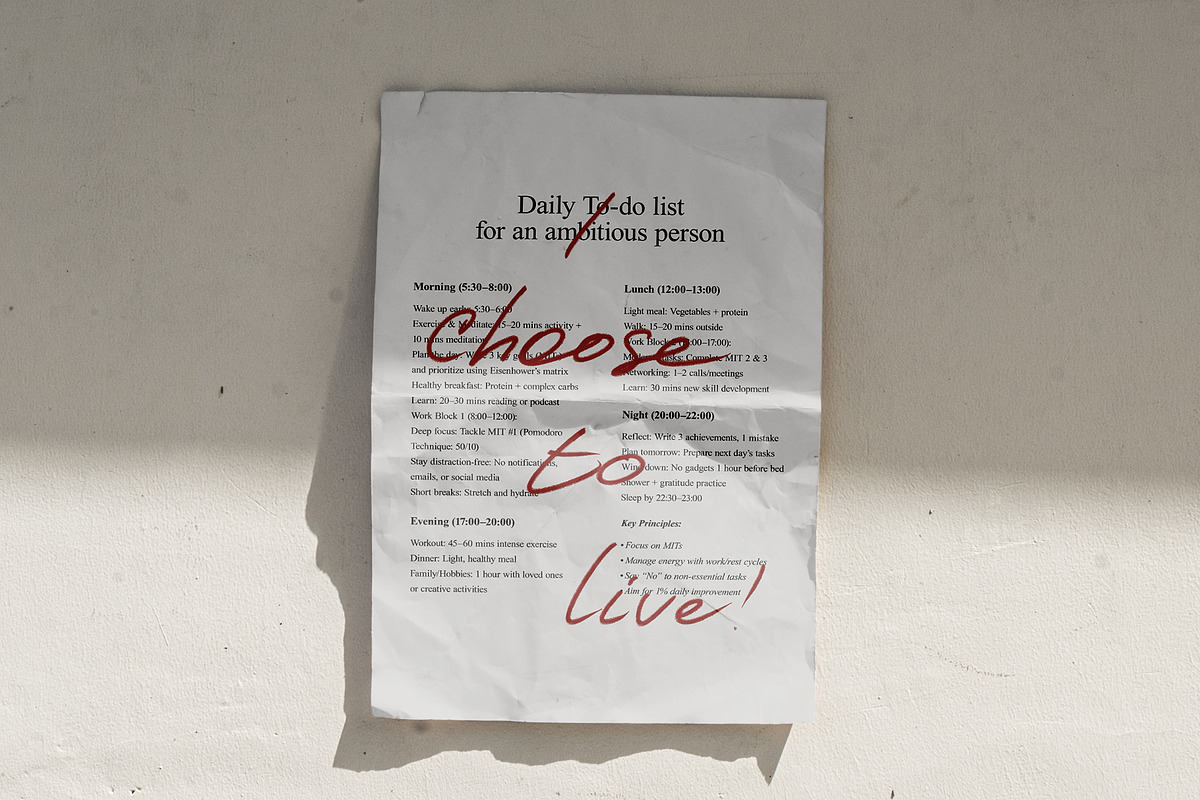 Daily To-do list
for an ambitious person
Morning (5:30–8:00)
Wake up early: 5:30–6:00
Exercise & Meditate: 15–20 mins activity +
10 mins meditation
Plan the day: Write 3 key goals (MITs)
and prioritize using Eisenhower's matrix
Healthy breakfast: Protein + complex carbs
Learn: 20–30 mins reading or podcast
Work Block 1 (8:00–12:00):
Deep focus: Tackle MIT #1 (Pomodoro
Technique: 50/10)
Stay distraction-free: No notifications,
emails, or social media
Short breaks: Stretch and hydrate
Evening (17:00–20:00)
Workout: 45–60 mins intense exercise
Dinner: Light, healthy meal
Family/Hobbies: 1 hour with loved ones
or creative activities
Lunch (12:00–13:00)
Light meal: Vegetables + protein
Walk: 15–20 mins outside
Work Block 2 (13:00–17:00):
tasks: Complete MIT 2 & 3
Networking: 1–2 calls/meetings
Learn: 30 mins new skill development
Night (20:00–22:00)
Reflect: Write 3 achievements, 1 mistake
Plan tomorrow: Prepare next day's tasks
Wind down: No gadgets 1 hour before bed
Shower + gratitude practice
Sleep by 22:30–23:00
Key Principles:
• Focus on MITs
• Manage energy with work/rest cycles
• Say "No" to non-essential tasks
• Aim for 1% daily improvement
choose
to
live!